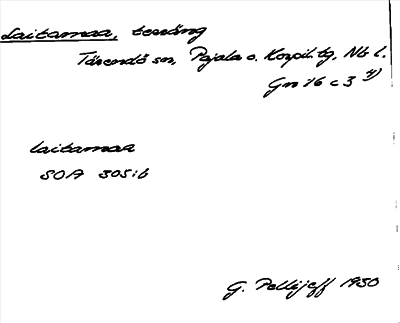 Laitamaa, terräng
Tärendö sn, Pajala o. Korpil. tg, Nb l.
Gn 16 c 3 4)
laitamaa
SOA 305:6
G. Pellijeff 1980